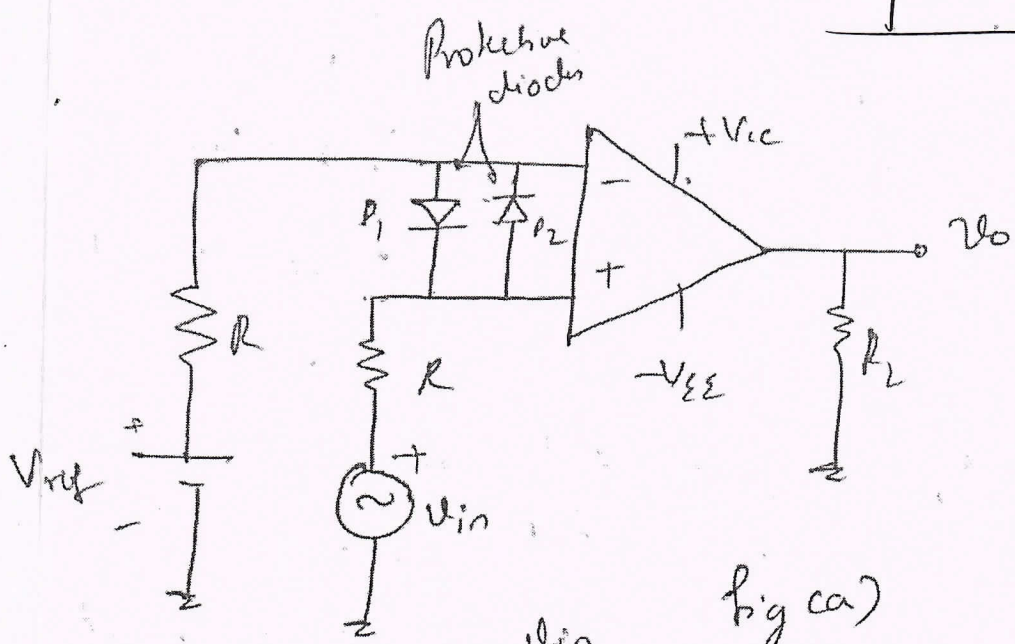 Protective
diodes
+VCC
D1
D2
−
vo
+
R
R
RL
-VEE
+
Vref
-
+
~
vin
fig (a)
vin